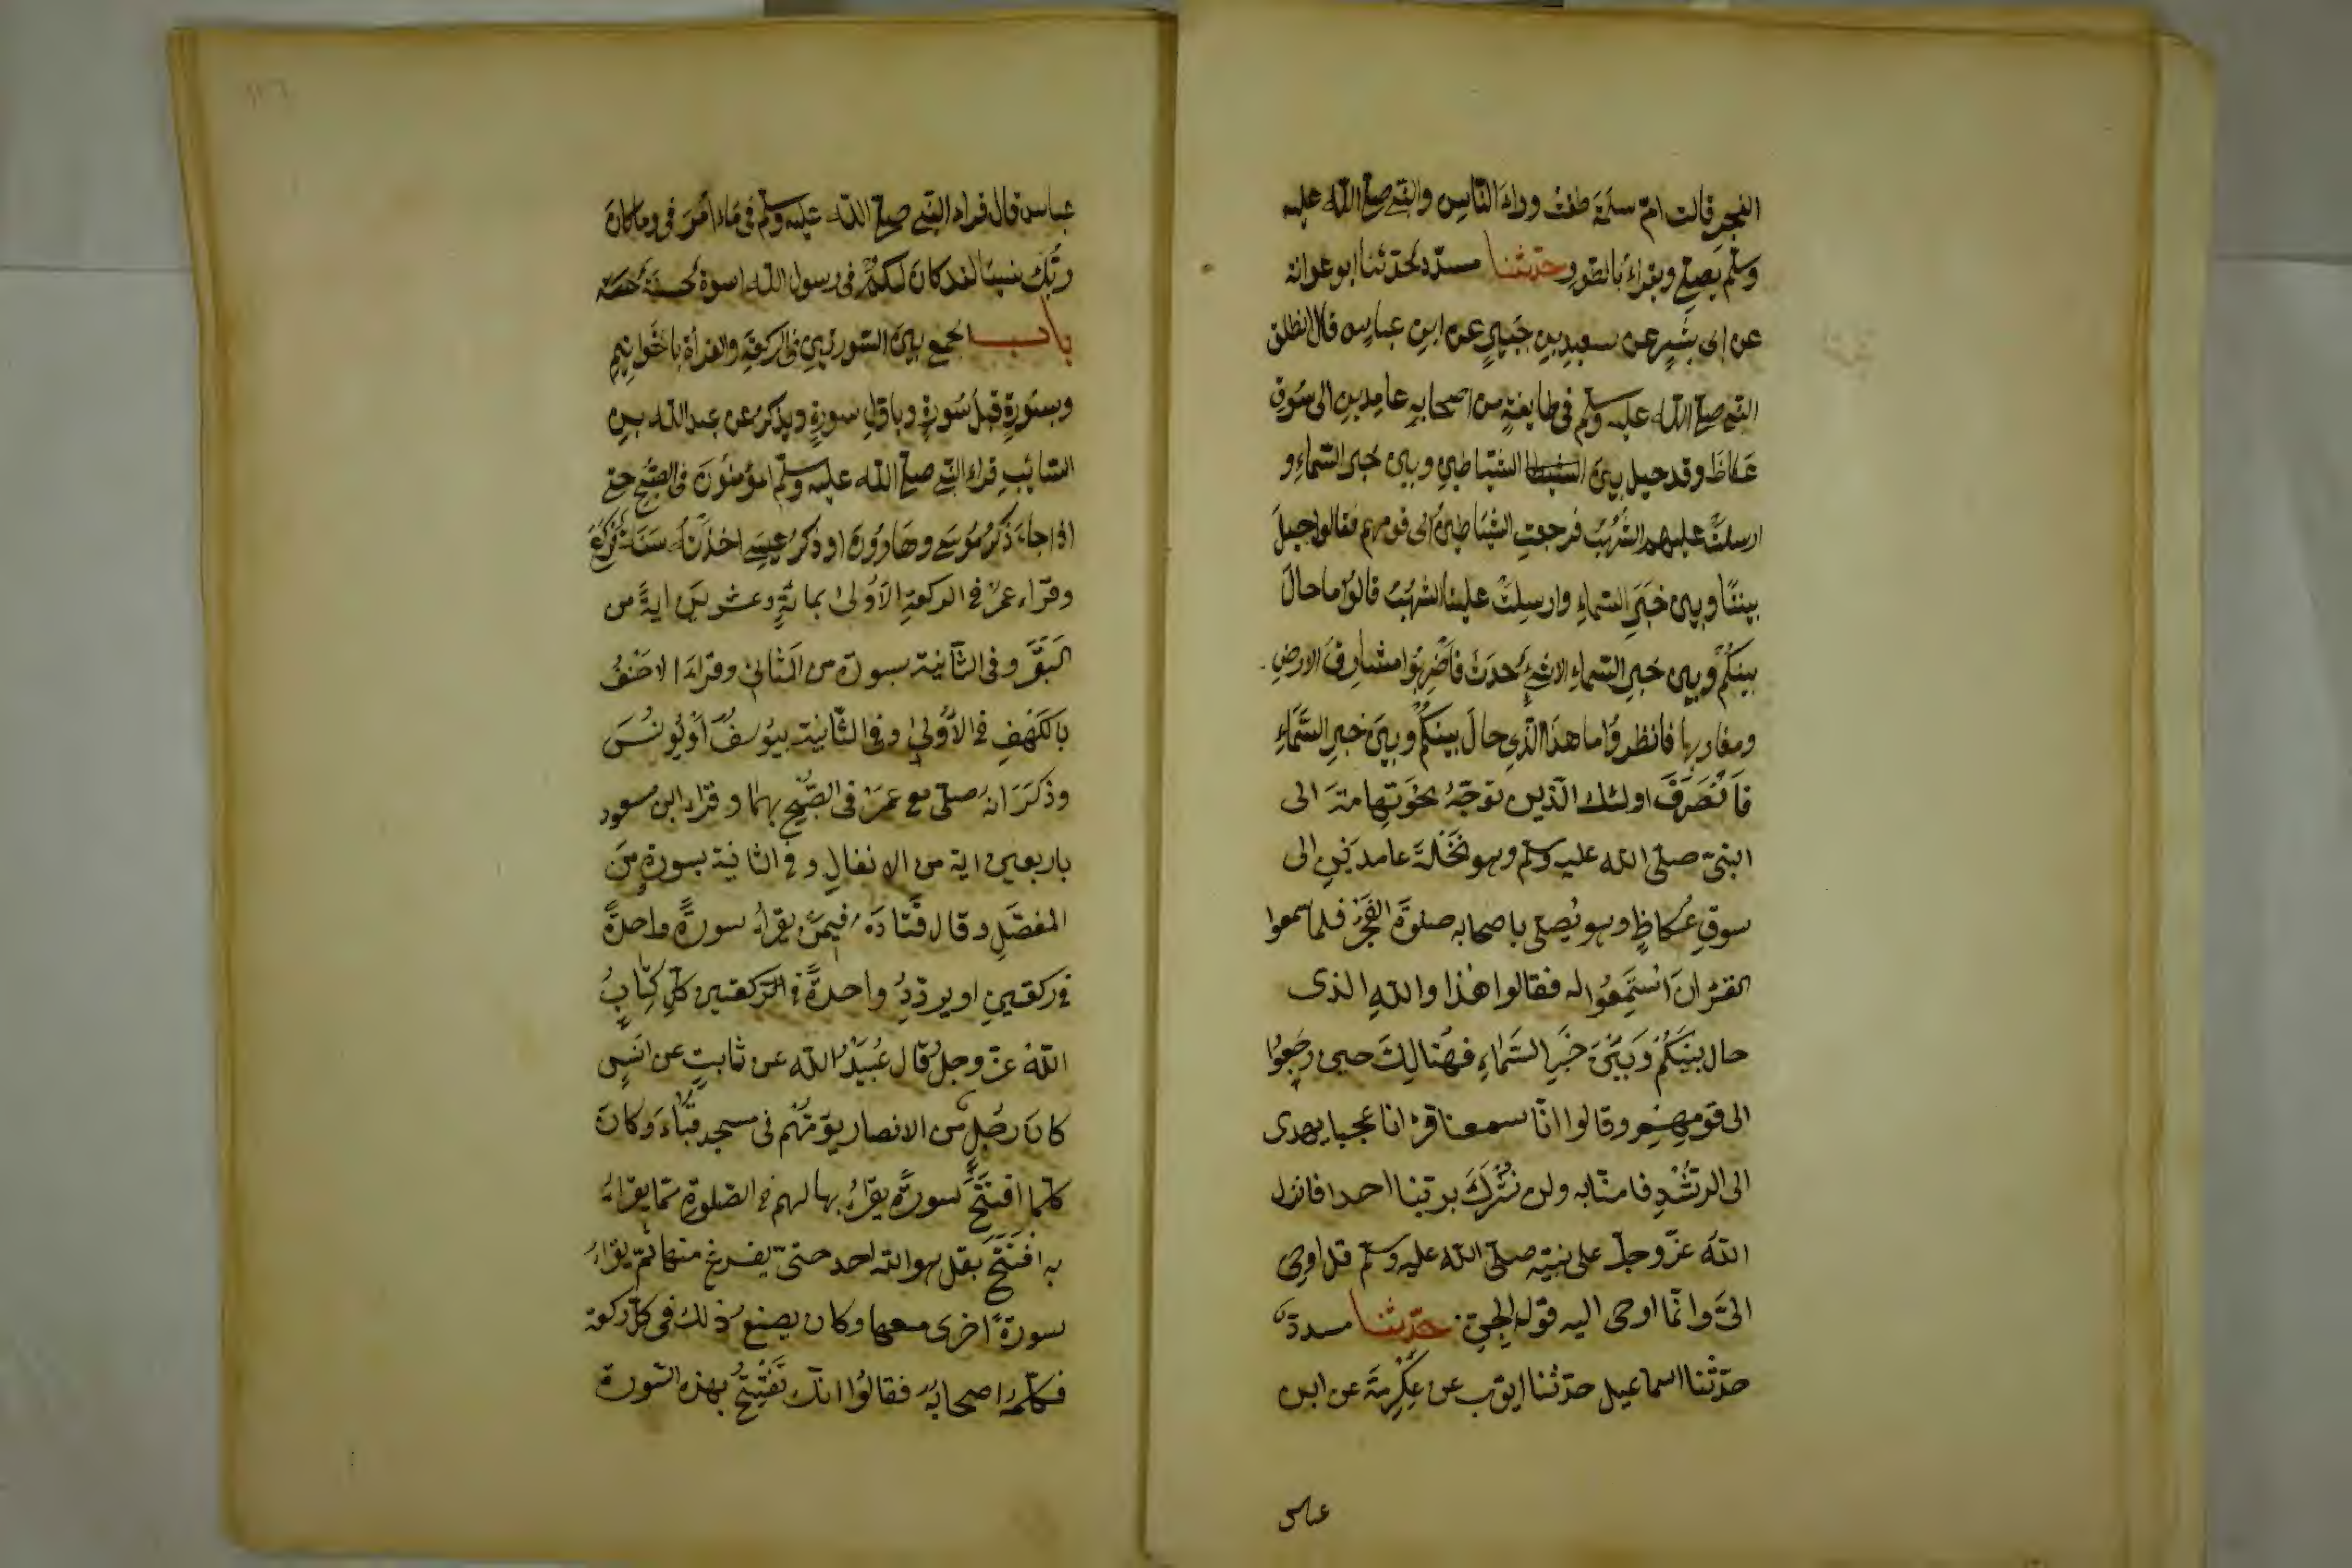 الفجر قالت امّ سلمة طفت وراء النّاس والنّبي صلّے اللّٰه عليه
وسلّم يصلّے ويقراء بالطّور حدّثنا مسدّد حدّثنا ابو عوانة
عن ابی بشر عن سعيد بن جبير عن ابن عباس قال انطلق
النّبي صلّے اللّٰه عليه وسلّم فی طايفة من اصحابه عامدين الی سوق
عكاظ وقد حيل بين الشياطين وبين خبر السّماء و
ارسلت عليهم الشّهب فرجعت الشياطين الی قومهم فقالوا حيل
بيننا وبين خبر السّماء وارسلت علينا الشهب قالوا ما حال
بينكم وبين خبر السّماء الا شیء حدث فاضربوا مشارق الارض
ومغاربها فانظروا ما هذا الّذی حال بينكم وبين خبر السّماء
فانصرف اولئك الّذين توجّه نحو تهامة الی
النبیّ صلّی اللّه عليه وسلّم وهو بنخلة عامدين الی
سوق عكاظ وهو يصلی باصحابه صلوة الفجر فلما سمعوا
القرٰان استمعوا له فقالوا هٰذا واللّٰه الذی
حال بينكم وبين خبر السّماء فهنالك حين رجعوا
الی قومهم وقالوا انّا سمعنا قرانا عجبا يهدی
الی الرّشد فامنّا به ولن نشرك بربّنا احدا فانزل
اللّٰه عزّ وجلّ علی نبيّه صلّی اللّٰه عليه وسلّم قل اوحی
الیّ وانّما اوحی اليه قول الجنّ حدّثنا مسدّد
حدّثنا اسماعيل حدّثنا ايّوب عن عكرمة عن ابن
عباس
عباس قال قراء النّبي صلّے اللّٰه عليه وسلّم فی ماء امر فی وما كان
ربّك نسيّا لقد كان لكم فی رسول اللّٰه اسوة حسنة
باب الجمع بين السّورتين فی الركعة والقراة باخواتيم
وبسورة قبل سورة وباوّل سورة ويذكر عن عبد اللّٰه بن
السّائب قراء النّبي صلّے اللّٰه عليه وسلّم المؤمنون فی الصّبح حتے
اذا جاء ذكر موسے وهارون او ذكر عيسے اخذته فركع
وقراء عمر فی الركعة الاولی بمائة وعشرين اية من
البقر وفی الثّانية بسورة من المثانی وقراء الاحنف
بالكهف فی الاولی وفی الثّانية بيوسف او يونس
وذكر انّه صلّی مع عمر فی الصّبح بهما وقراء ابن مسعود
باربعين اية من الانفال وفی الثانية بسورة من
المفصّل وقال قتادة فيمن يقراء سورة واحدة
فی ركعتين او يردّد واحدة فی الرّكعتين كلّ كتاب
اللّٰه عزّ وجلّ قال عبيد اللّٰه عن ثابت عن انس
كان رجل من الانصار يؤمّهم فی مسجد قباء وكان
كلّما افتتح سورة يقراء بها لهم فی الصّلوة ممّا يقراء
به افتتح بقل هو اللّه احد حتیّ يفرغ منها ثمّ يقراء
سورة اخری معها وكان يصنع ذلك فی كلّ ركعة
فكلّمه اصحابه فقالوا انّك تفتتح بهذه السّورة